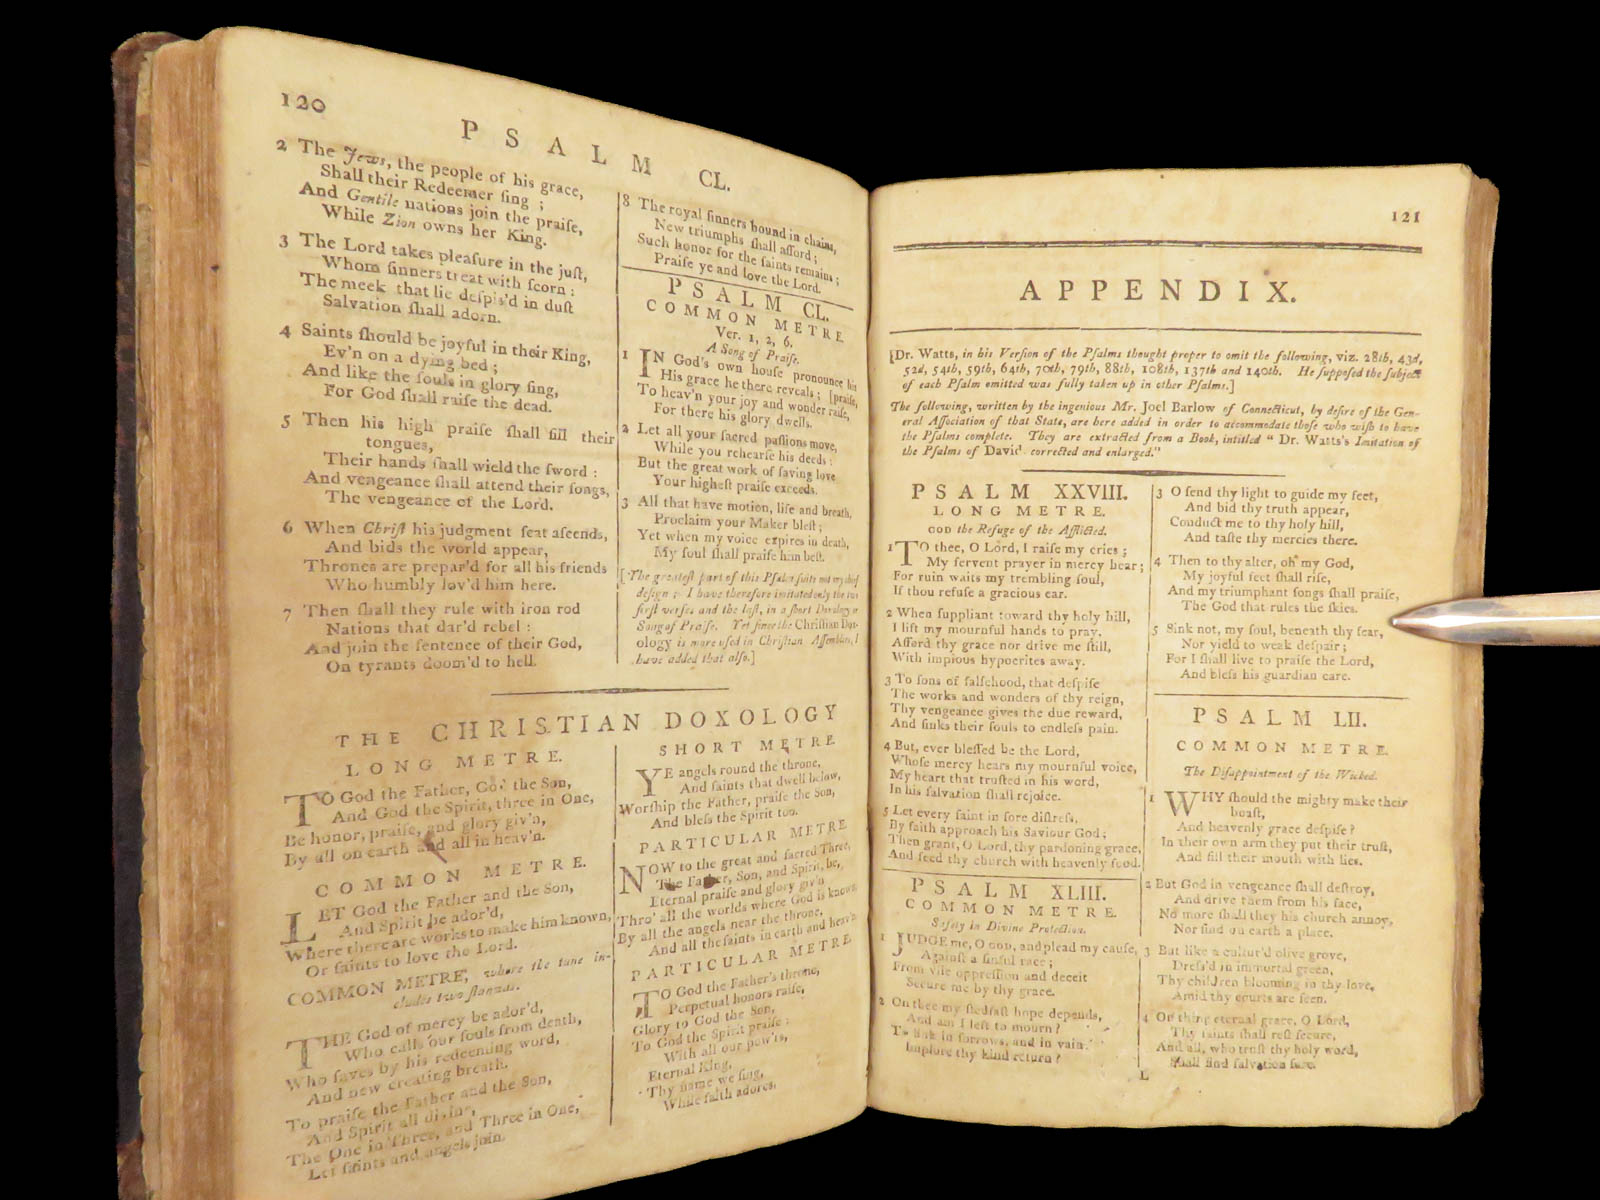 120
PSALM CL.
2 The Jews, the people of his grace,
Shall their Redeemer ſing ;
And Gentile nations join the praiſe,
While Zion owns her King.
3 The Lord takes pleaſure in the juſt,
Whom ſinners treat with ſcorn :
The meek that lie deſpis'd in duſt
Salvation ſhall adorn.
4 Saints ſhould be joyful in their King,
Ev'n on a dying bed ;
And like the ſouls in glory ſing,
For God ſhall raiſe the dead.
5 Then his high praiſe ſhall fill their
tongues,
Their hands ſhall wield the ſword :
And vengeance ſhall attend their ſongs,
The vengeance of the Lord.
6 When Chriſt his judgment ſeat aſcends,
And bids the world appear,
Thrones are prepar'd for all his friends
Who humbly lov'd him here.
7 Then ſhall they rule with iron rod
Nations that dar'd rebel :
And join the ſentence of their God,
On tyrants doom'd to hell.
8 The royal ſinners bound in chains,
New triumphs ſhall afford ;
Such honor for the ſaints remains ;
Praiſe ye and love the Lord.
PSALM CL.
COMMON METRE.
Ver. 1, 2, 6.
A Song of Praiſe.
1 IN God's own houſe pronounce his
His grace he there reveals ; [praiſe,
To heav'n your joy and wonder raiſe,
For there his glory dwells.
2 Let all your ſacred paſſions move,
While you rehearſe his deeds :
But the great work of ſaving love
Your higheſt praiſe exceeds.
3 All that have motion, life and breath,
Proclaim your Maker bleſt ;
Yet when my voice expires in death,
My ſoul ſhall praiſe him beſt.
[The greateſt part of this Pſalm ſuits not my chief
deſign ; I have therefore imitated only the two
firſt verſes and the laſt, in a ſhort Doxology or
Song of Praiſe. Yet ſince the Chriſtian Dox-
ology is more uſed in Chriſtian Aſſemblies, I
have added that alſo.]
THE CHRISTIAN DOXOLOGY
LONG METRE.
TO God the Father, God the Son,
And God the Spirit, three in One,
Be honor, praiſe, and glory giv'n,
By all on earth and all in heav'n.
COMMON METRE.
LET God the Father and the Son,
And Spirit be ador'd,
Where there are works to make him known,
Or ſaints to love the Lord.
COMMON METRE, where the tune in-
cludes two ſtanzas.
THE God of mercy be ador'd,
Who calls our ſouls from death,
Who ſaves by his redeeming word,
And new creating breath.
To praiſe the Father and the Son,
And Spirit all divine,
The One in Three, and Three in One,
Let ſaints and angels join.
SHORT METRE.
YE angels round the throne,
And ſaints that dwell below,
Worſhip the Father, praiſe the Son,
And bleſs the Spirit too.
PARTICULAR METRE
NOW to the great and ſacred Three,
The Father, Son, and Spirit, be,
Eternal praiſe and glory giv'n
Thro' all the worlds where God is known,
By all the angels near the throne,
And all the ſaints in earth and heav'n
PARTICULAR METRE
TO God the Father's throne,
Perpetual honors raiſe,
Glory to God the Son,
To God the Spirit praiſe :
With all our pow'rs,
Eternal King,
Thy name we ſing,
While faith adores.
121
APPENDIX.
[Dr. Watts, in his Verſion of the Pſalms thought proper to omit the following, viz. 28th, 43d,
52d, 54th, 59th, 64th, 70th, 79th, 88th, 108th, 137th and 140th. He ſuppoſed the ſubject
of each Pſalm omitted was fully taken up in other Pſalms.]
The following, written by the ingenious Mr. Joel Barlow of Connecticut, by deſire of the Gen-
eral Aſſociation of that State, are here added in order to accommodate thoſe who wiſh to have
the Pſalms complete. They are extracted from a Book, intitled " Dr. Watts's Imitation of
the Pſalms of David corrected and enlarged."
PSALM XXVIII.
LONG METRE.
GOD the Refuge of the Afflicted.
1 TO thee, O Lord, I raiſe my cries ;
My fervent prayer in mercy hear ;
For ruin waits my trembling ſoul,
If thou refuſe a gracious ear.
2 When ſuppliant toward thy holy hill,
I lift my mournful hands to pray.
Afford thy grace nor drive me ſtill,
With impious hypocrites away.
3 To ſons of falſehood, that deſpiſe
The works and wonders of thy reign,
Thy vengeance gives the due reward,
And ſinks their ſouls to endleſs pain.
4 But, ever bleſſed be the Lord,
Whoſe mercy hears my mournful voice,
My heart that truſted in his word,
In his ſalvation ſhall rejoice.
5 Let every ſaint in ſore diſtreſs,
By faith approach his Saviour God ;
Then grant, O Lord, thy pardoning grace,
And feed thy church with heavenly food.
PSALM XLIII.
COMMON METRE.
Safety in Divine Protection.
1 JUDGE me, O GOD, and plead my cauſe,
Againſt a ſinful race ;
From vile oppreſſion and deceit
Secure me by thy grace.
2 On thee my ſtedfaſt hope depends,
And am I left to mourn ?
To ſink in ſorrows, and in vain
Implore thy kind return ?
3 O ſend thy light to guide my feet,
And bid thy truth appear,
Conduct me to thy holy hill,
And taſte thy mercies there.
4 Then to thy alter, oh my God,
My joyful feet ſhall riſe,
And my triumphant ſongs ſhall praiſe,
The God that rules the ſkies.
5 Sink not, my ſoul, beneath thy fear,
Nor yield to weak deſpair ;
For I ſhall live to praiſe the Lord,
And bleſs his guardian care.
PSALM LII.
COMMON METRE.
The Diſappointment of the Wicked.
1 WHY ſhould the mighty make their
boaſt,
And heavenly grace deſpiſe ?
In their own arm they put their truſt,
And fill their mouth with lies.
2 But God in vengeance ſhall deſtroy,
And drive them from his face,
No more ſhall they his church annoy,
Nor find on earth a place.
3 But like a cultur'd olive grove,
Dreſs'd in immortal green,
Thy children blooming in thy love,
Amid thy courts are ſeen.
4 On thine eternal grace, O Lord,
Thy ſaints ſhall reſt ſecure,
And all, who truſt thy holy word,
Shall find ſalvation ſure.
L